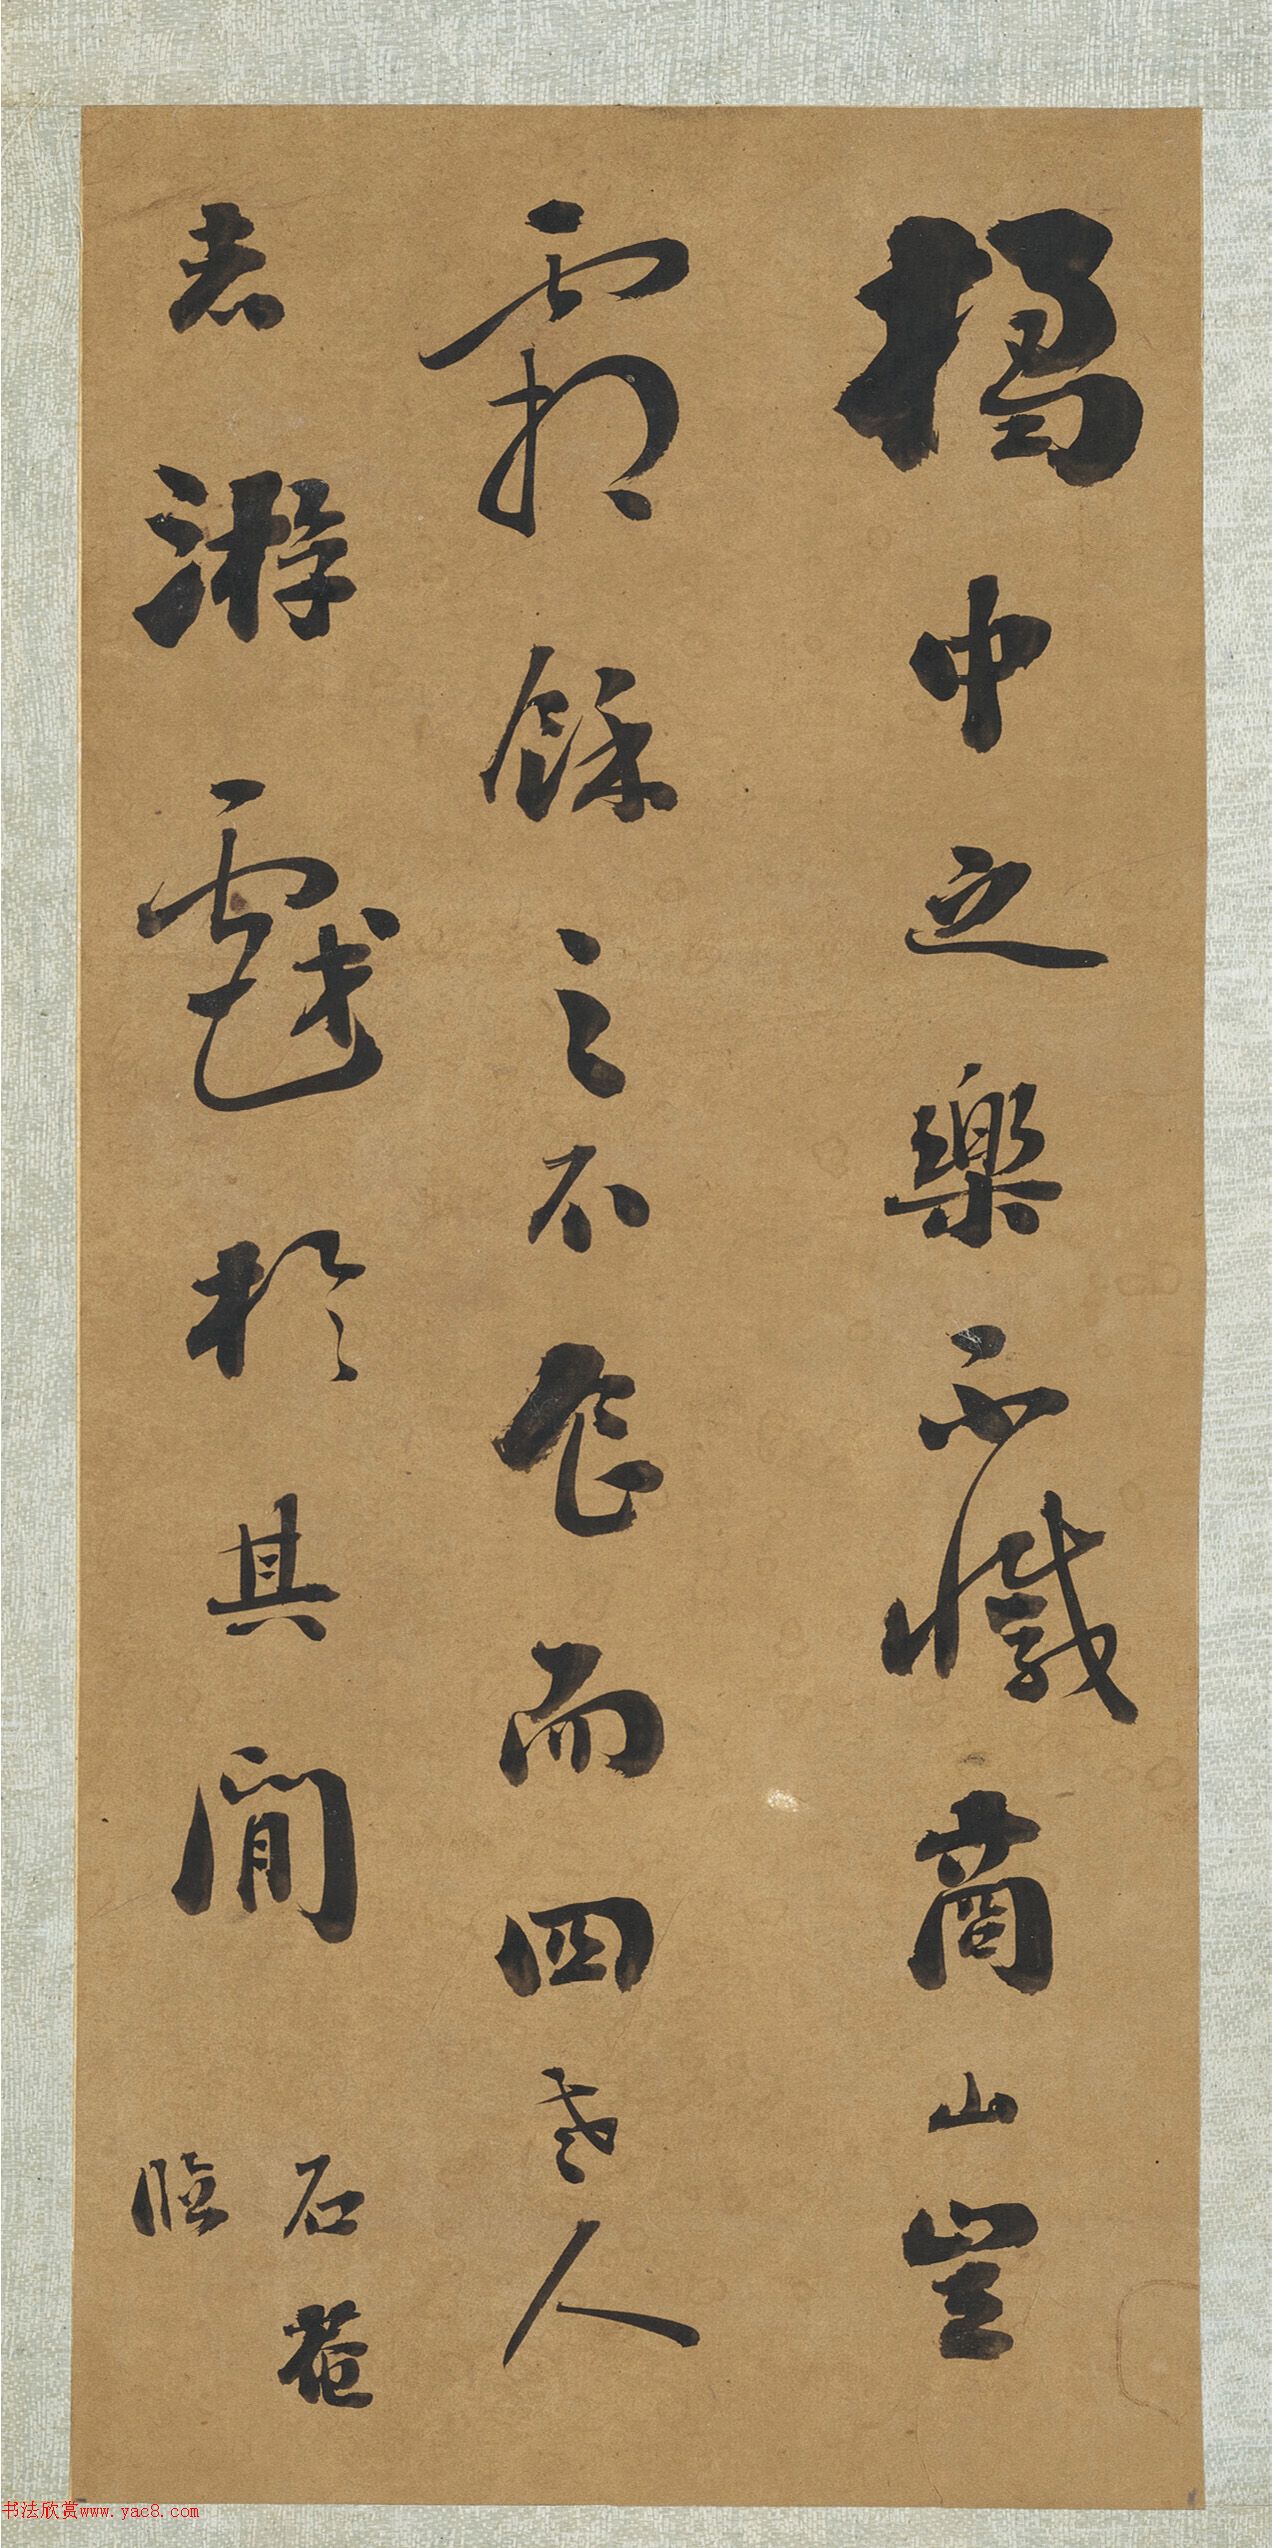 橘中之樂不減商山豈
霜餘之不食而四老人
者游戲於其間
石菴
臨
书法欣赏www.yac8.com